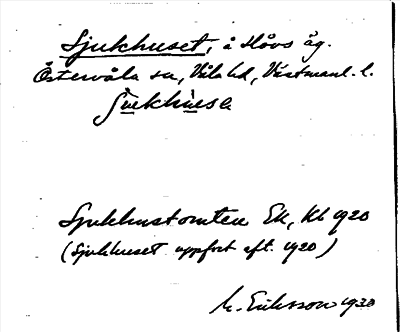 Sjukhuset, å Hovs äg.
Östervåla sn, Våla hd, Västmanl. l.
Sjukhustomten Ek, kb 1920
(Sjukhuset uppfört eft. 1920)
M. Eriksson 1930